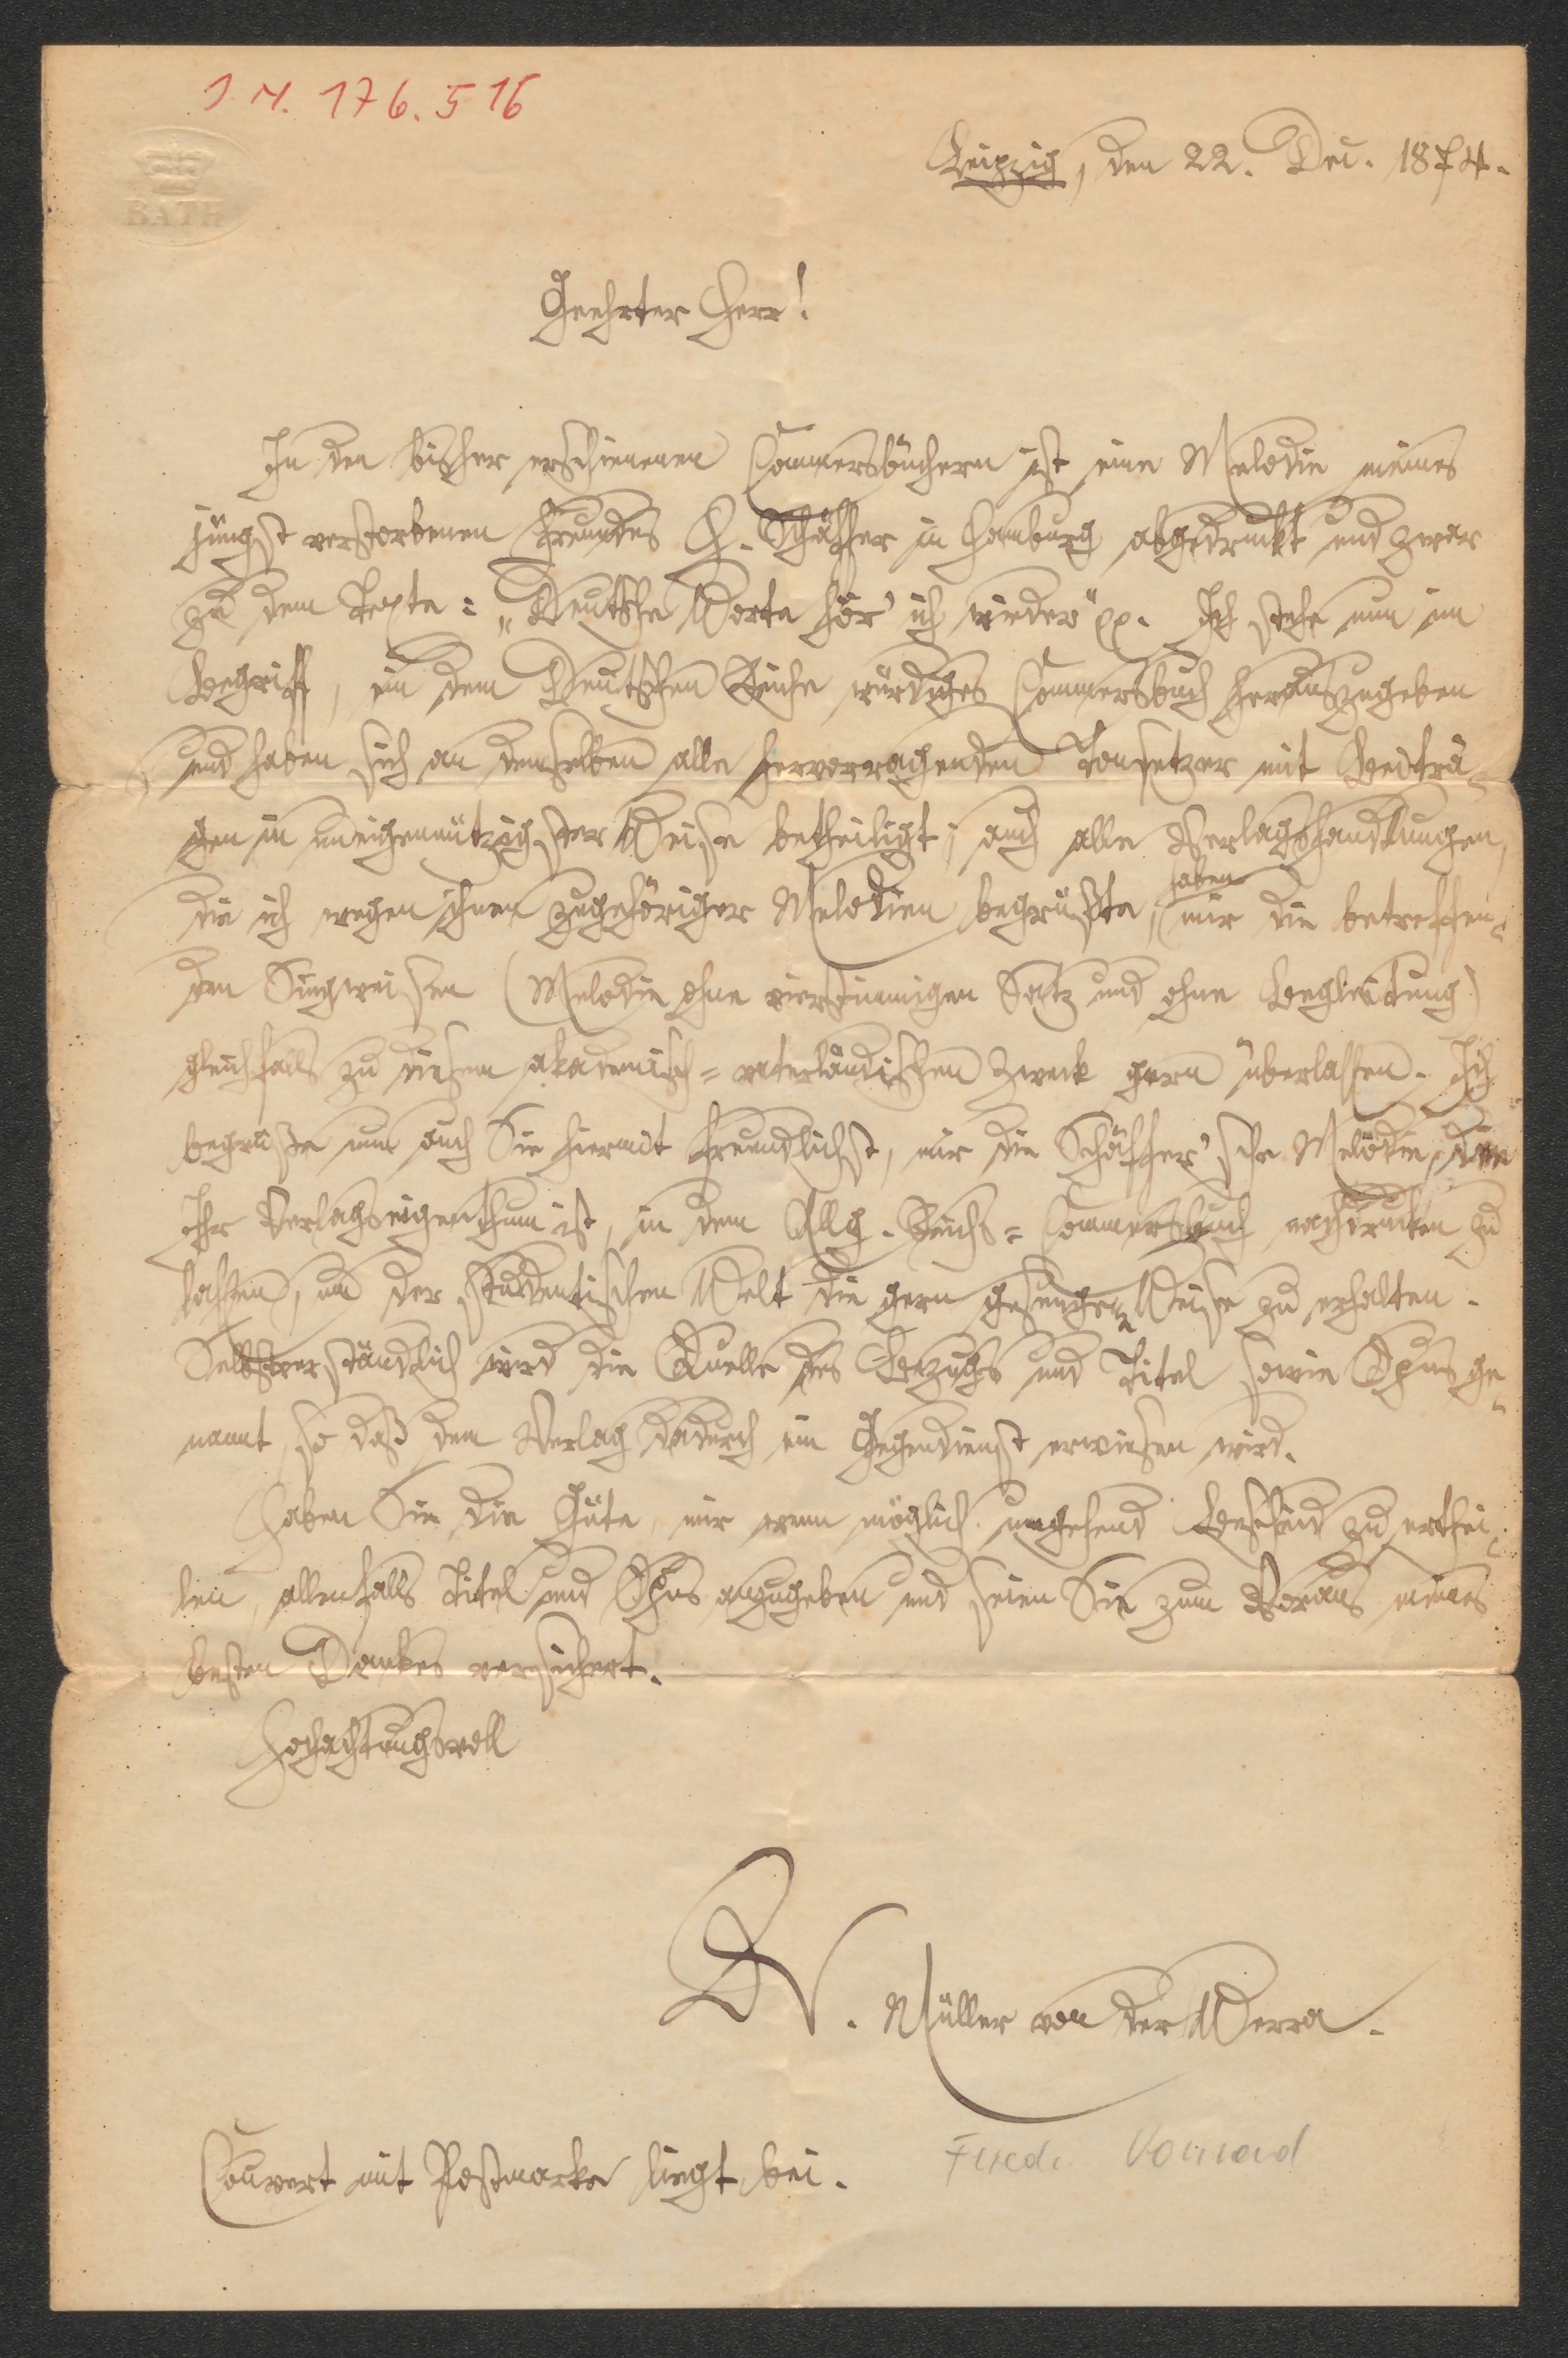 I. N. 176.516
BATH
Leipzig, den 22. Dec. 1874.
Geehrter Herr!
In den bisher erschienenen Commersbüchern ist eine Melodie meines
jüngst verstorbenen Freundes H. Schäffer in Hamburg abgedruckt und zwar
zu dem Texte: „Deutsche Worte hör' ich wieder" pp. Ich stehe nun im
Begriff, ein dem Deutschen Reiche würdiges Commersbuch herauszugeben
und haben sich an demselben alle hervorragenden Tonsetzer mit Beiträ-
gen in uneigennützigster Weise betheiligt; auch alle Verlagshandlungen,
die ich wegen ihnen zugehöriger Melodien begrüßte, haben mir die betreffen-
den Singweisen (Melodie ohne vierstimmigen Satz und ohne Begleitung)
gleichfalls zu diesem akademisch-vaterländischen Zweck gern überlassen. Ich
begrüße nun auch Sie hiermit freundlichst, mir die Schäffer'sche Melodie, die
Ihr Verlagseigenthum ist, in dem Allg. Reichs-Commersbuch nachdrucken zu
lassen, um der studentischen Welt die gern gesungene Weise zu erhalten.
Selbstverständlich wird die Quelle des Bezugs und Titel sowie Opus ge-
nannt, so daß dem Verlag dadurch ein Gegendienst erwiesen wird.
Haben Sie die Güte, mir wenn möglich umgehend Bescheid zu erthei-
len, allenfalls Titel und Opus anzugeben und seien Sie zum Voraus meines
besten Dankes versichert.
Hochachtungsvoll
Müller von der Werra.
Friedr. Konrad
Couvert mit Postmarke liegt bei.